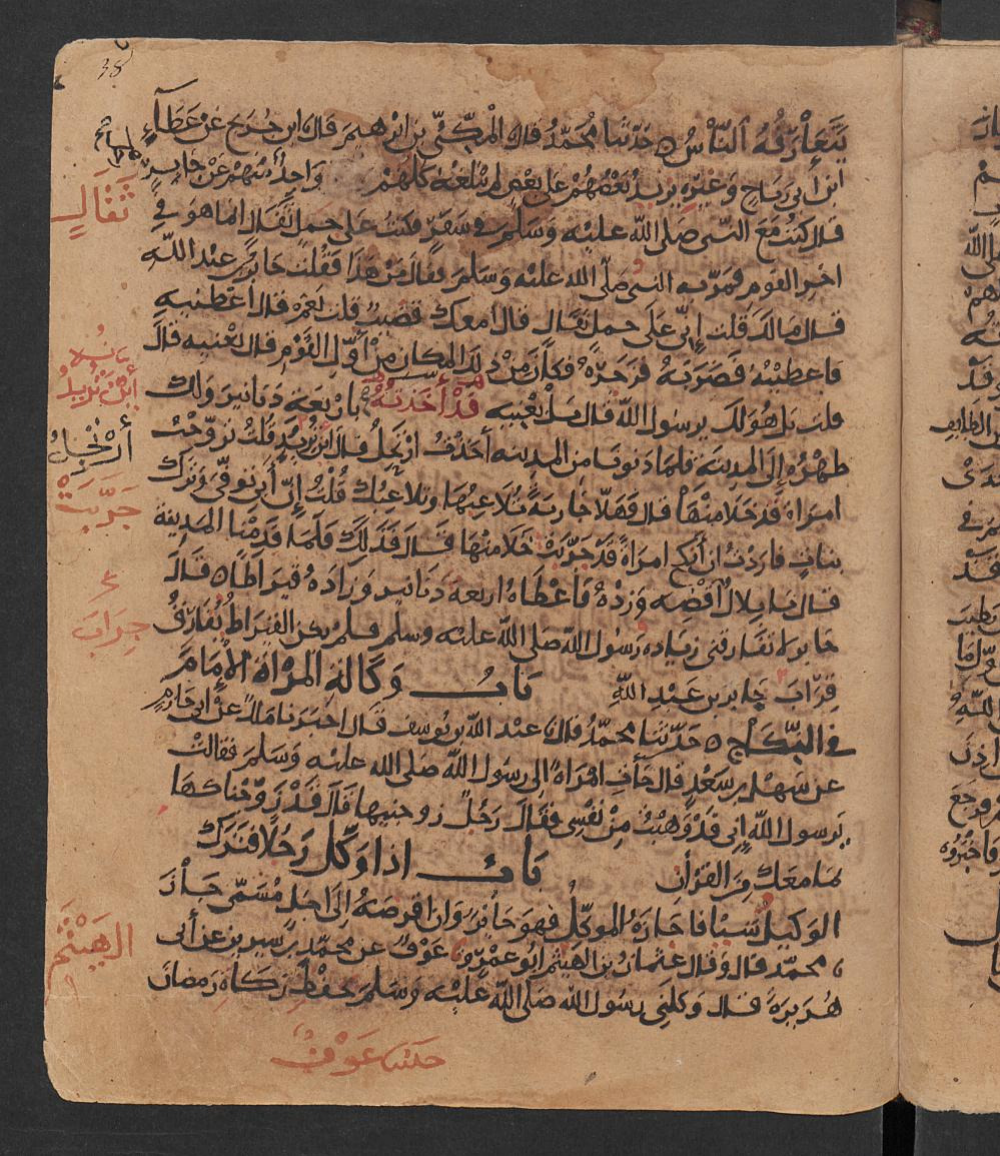 38
يَتَعَارَفُهُ النَّاسُ ه حَدَّثَنَا مُحَمَّدٌ قال المَكِّيُّ بن ابرهيمَ قال ابن جُرَيجٍ عَنْ عَطَآءِ
ابن ابي رَبَاحٍ وَغَيْرِهِ يَزيدُ بَعْضُهُمْ على بعضٍ لم يُبَلِّغْهُ كُلُّهُمْ واحدٌ مِنْهُمْ عَنْ جابرٍ
قال كنتُ مَعَ النبي صَلى الله عليه وَسَلم في سَفَرٍ فكنتُ على جَمَلٍ ثَفَالٍ انما هو في
اخر القوم فمرَّ به النبي صَلّى الله عليه وَسَلم فقال مَنْ هَذا فقلت جابر بن عبد الله
قال مَا لك قلت إنّي عَلَى جملٍ ثفال قال امعك قضيبٌ قلت نعم قال أعطنيه
فاعطيتُهُ فضَرَبَهُ فزجَرَهُ فكانَ مِنْ ذلك المكان مِنْ أوَّل القَوْم قال بعْنيهِ قالَ
قلت بل هُوَ لك يرسُول الله قال بَلْ بِعْنِيهِ قَدْ أَخَذْتُهُ بأربَعةِ دَنانيرَ ولك
ظهْرُهُ إلَى المدينَةِ فلما دَنونا من المدينه أخَذْتُ ارْتحلُ قال اين تُرِيدُ قلتُ تزوّجْتُ
امرَاةً قد خَلَا مِنْهَا قال فَهَلّا جَارِيَةً تُلَاعِبُهَا وتلاعِبُك قُلْتُ إنّ أبي تُوفّيَ وَتَرَك
بناتٍ فاردْتُ ان أنكح امرَاةً قد جَرَّبَتْ خَلَا مِنْهَا قَال فَذلك فَلَمّا قَدِمْنا المدينة
قال يَا بلالُ اقْضِهِ وَزِدْهُ فَأعْطَاهُ اربعةَ دَنانير وَزادَهُ قيرَاطًا ه قَالَ
جابر لا تفارقني زيَاده رَسُول الله صَلى الله عليه وسلم فلم يكن القيرَاطُ يُفَارِقُ
قِرَابَ جَابر بن عَبْدِ اللهِ بَابُ وَكَالة المرْاة الإمَامَ
في النِّكَاحِ ه حَدّثنا محمّدٌ قال عبْد الله بن يُوسف قال اخبَرنا مَالك عن ابي حَازمٍ
عن سَهْل بن سَعْدٍ قال جآءَتِ امْرَاةٌ الى رسُول الله صَلى الله عليه وَسَلم فقالتْ
يَرسول الله إني قدْ وَهَبْتُ مِنْ نَفْسِي فقالَ رَجُلٌ زوجنيها قَالَ قَدْ زَوَّجْناكهَا
بمَا معَك مِنَ القرآنِ بَابُ اذا وَكَّل رَجُلًا فتَرَك
الوَكيلُ شيئًا فاجَازَهُ الموكّلُ فهوَ جَائزٌ وَان اقرضَهُ إلَى اجَلٍ مُسَمًّى جَازَ
محمّد قال وَقال عثمانُ بن الهيثَم ابُو عَمْرٍو عَوْفٌ عن محمّد بن سيرين عن أبي
هُرَيرَةَ قال وَكلني رسُول الله صَلّى الله عليْه وَسَلم بحفظ زكَاةِ رَمضانَ
ثَفَالٍ
أَيْنَ تُرِيدُ
أَرْتَحِلُ
جَرَّبَتْ
جِرَابَ
الهَيْثَمِ
حدثنا عَوْفٌ